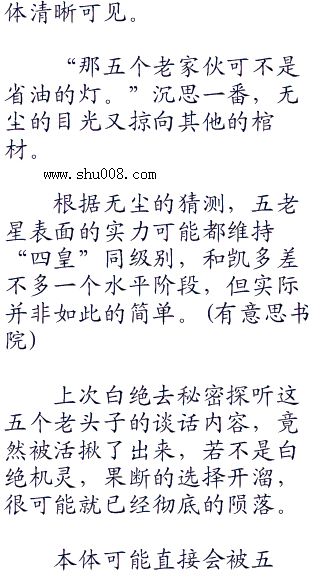 体清晰可见。
“那五个老家伙可不是
省油的灯。”沉思一番，无
尘的目光又掠向其他的棺
材。
www.shu008.com
根据无尘的猜测，五老
星表面的实力可能都维持
“四皇”同级别，和凯多差
不多一个水平阶段，但实际
并非如此的简单。(有意思书
院)
上次白绝去秘密探听这
五个老头子的谈话内容，竟
然被活揪了出来，若不是白
绝机灵，果断的选择开溜，
很可能就已经彻底的陨落。
本体可能直接会被五